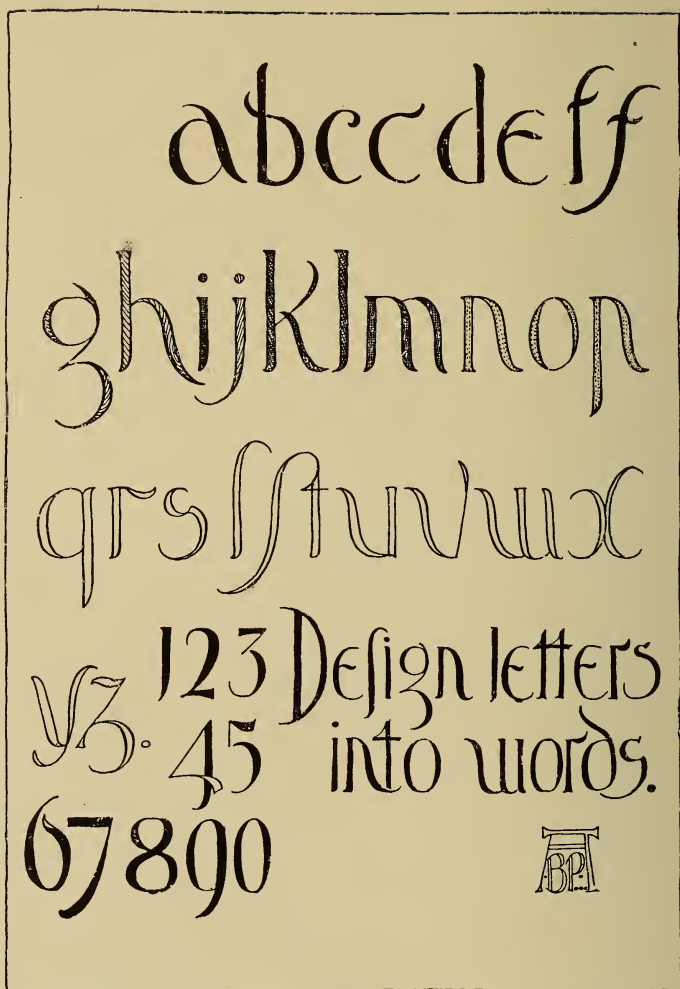 abccdeff
ghijklmnop
qrsſſtuvwx
yz. 123 Deſign letters
45 into words.
67890
ABP